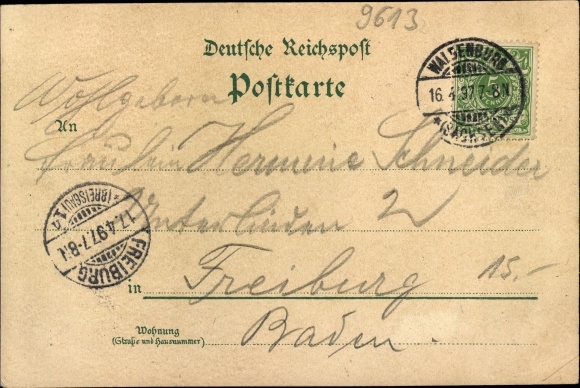 9613
Deutsche Reichspost
Postkarte
WALDENBURG
16. 4. 97. 7-8.N.
*(SACHSEN)*
5
Wohlgeboren
An
Fräulein Hermine Schneider
Unterlinden 2
FREIBURG
17.4.97.7-8.V.
*(BREISGAU)1.*
in Freiburg
15.-
Baden.
Wohnung
(Straße und Hausnummer)